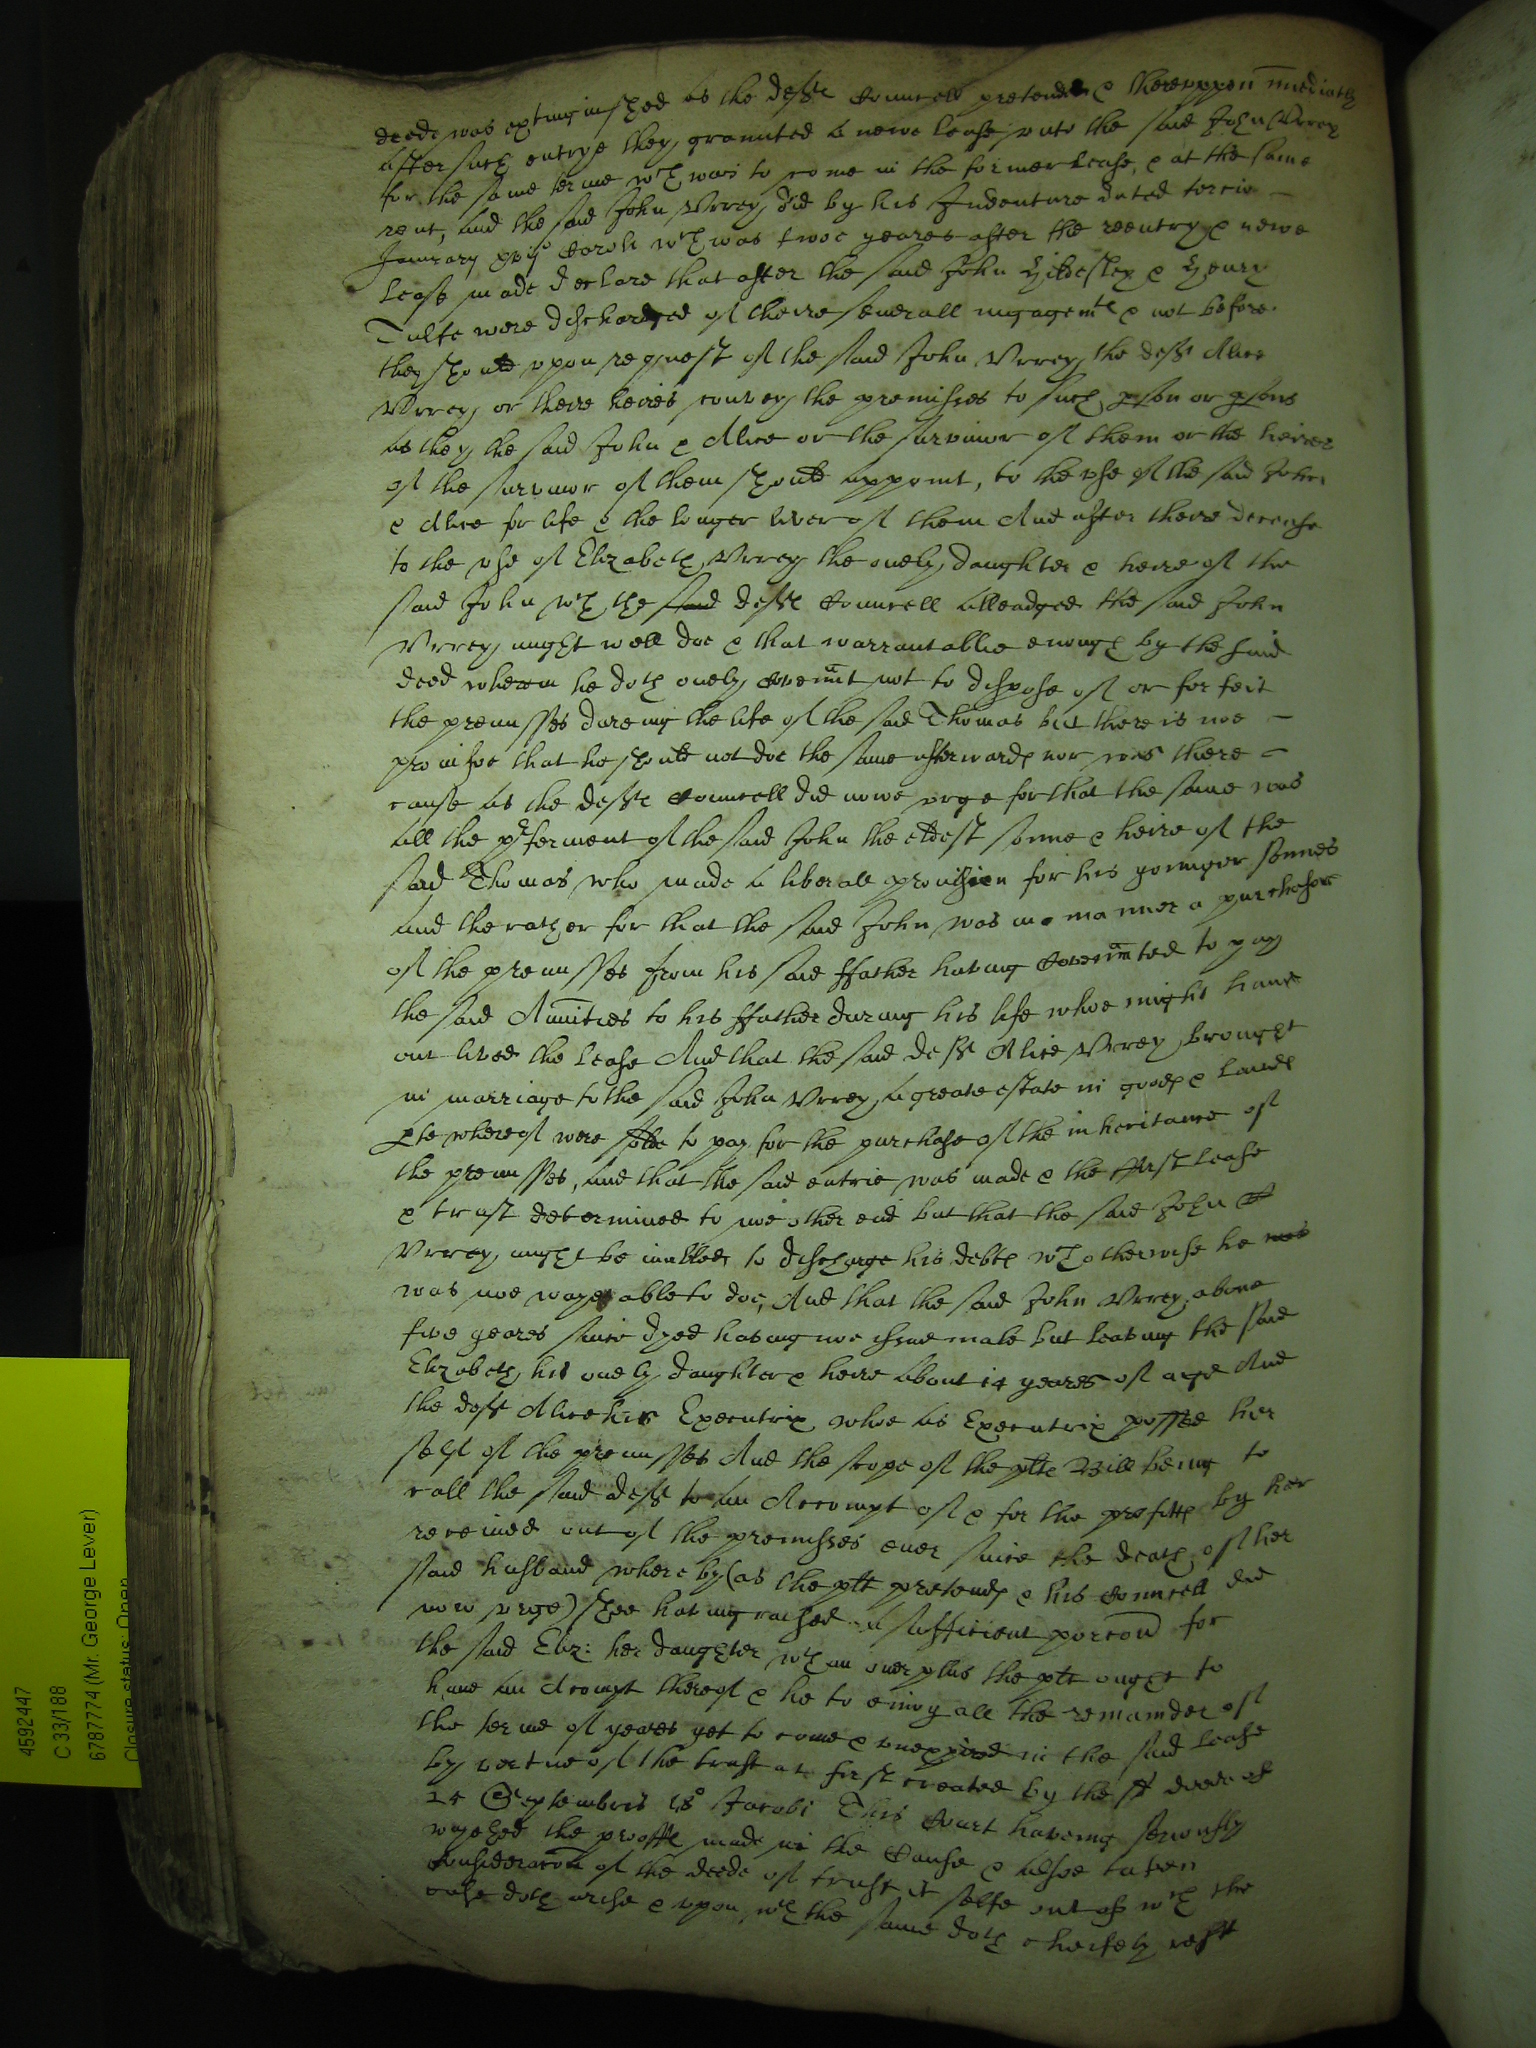 deede was extinguished as the deftes Councell pretended & thereuppon imediatly
after such entrye they graunted a newe lease unto the said John Vrrey
for the same terme wch was to come in the former lease, & at the same
rent, And the said John Vrrey did by his Indenture dated tercio
January xvijo Caroli wch was twoe yeares after the reentry & newe
lease made declare that after the said John & Henry
were discharged of theire severall ingagemts & not before
they should upon request of the said John Vrrey the deft Alice
Vrrey or theire heires convey the premisses to such pson or psons
as they the said John & Alice or the survivor of them or the heires
of the survivor of them should appoint, to the use of the said John
& Alice for life & the longer liver of them And after theire decease
to the use of Elizabeth Vrrey the onely daughter & heire of the
said John wch the said deftes Councell alleadged the said John
Vrrey might well doe & that warrantablie enough by the said
deed wherein he doth onely covennt not to dispose of or forfeit
the premisses dureing the life of the said Thomas but there is noe
provisoe that he should not doe the same afterwards nor was there
cause as the deftes Councell did nowe urge for that the same was
all the pferment of the said John the eldest sonne & heire of the
said Thomas who made a liberall provision for his yonnger sonnes
and the rather for that the said John was in a manner a purchasor
of the premisses from his said ffather having Covennted to pay
the said Annuities to his ffather during his life whoe might have
out lived the lease And that the said deft Alice Vrrey brought
in marriage to the said John Vrrey a greate estate in goods & lands
pte whereof were solde to pay for the purchase of the inheritance of
the premisses, And that the said entrie was made & the first lease
& trust determined to noe other end but that the said John
Vrrey might be inabled to discharge his debts wch otherwise he was
was noe wayes able to doe, And that the said John Vrrey above
five yeares since dyed having noe issue male but leaving the said
Elizabeth his onely daughter & heire about 14 yeares of age And
the deft Alice his Executrix whoe as Executrix possed her
selfe of the premisses And the scope of the plts Bill being to
call the said deft to an Accompt of & for the profitts by her
received out of the premisses ever since the death of her
said husband whereby (as the plt pretends & his Councell did
now urge) shee having raised a sufficient porcon for
the said Eliz: her daughter wth an overplus the plt ought to
have an Accompt thereof & he to enioy all the remainder of
the terme of yeares yet to come & unexpired in the said lease
by vertue of the trust at first created by the sd deede of
24 Septembris 18o Jacobi This Court haveing seriously
wayghed the prooffes made in the Cause & alsoe taken
Consideracon of the deede of trust it selfe out of wch the
case doth arise & upon wch the same doth cheifely rest
4592447
C 33/188
6787774 (Mr. George Lever)
Closure status: Open